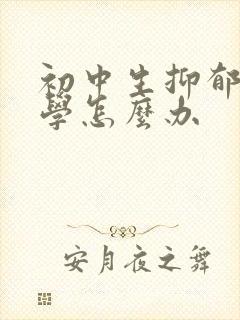 初中生抑郁
學怎麽办
安月夜之舞